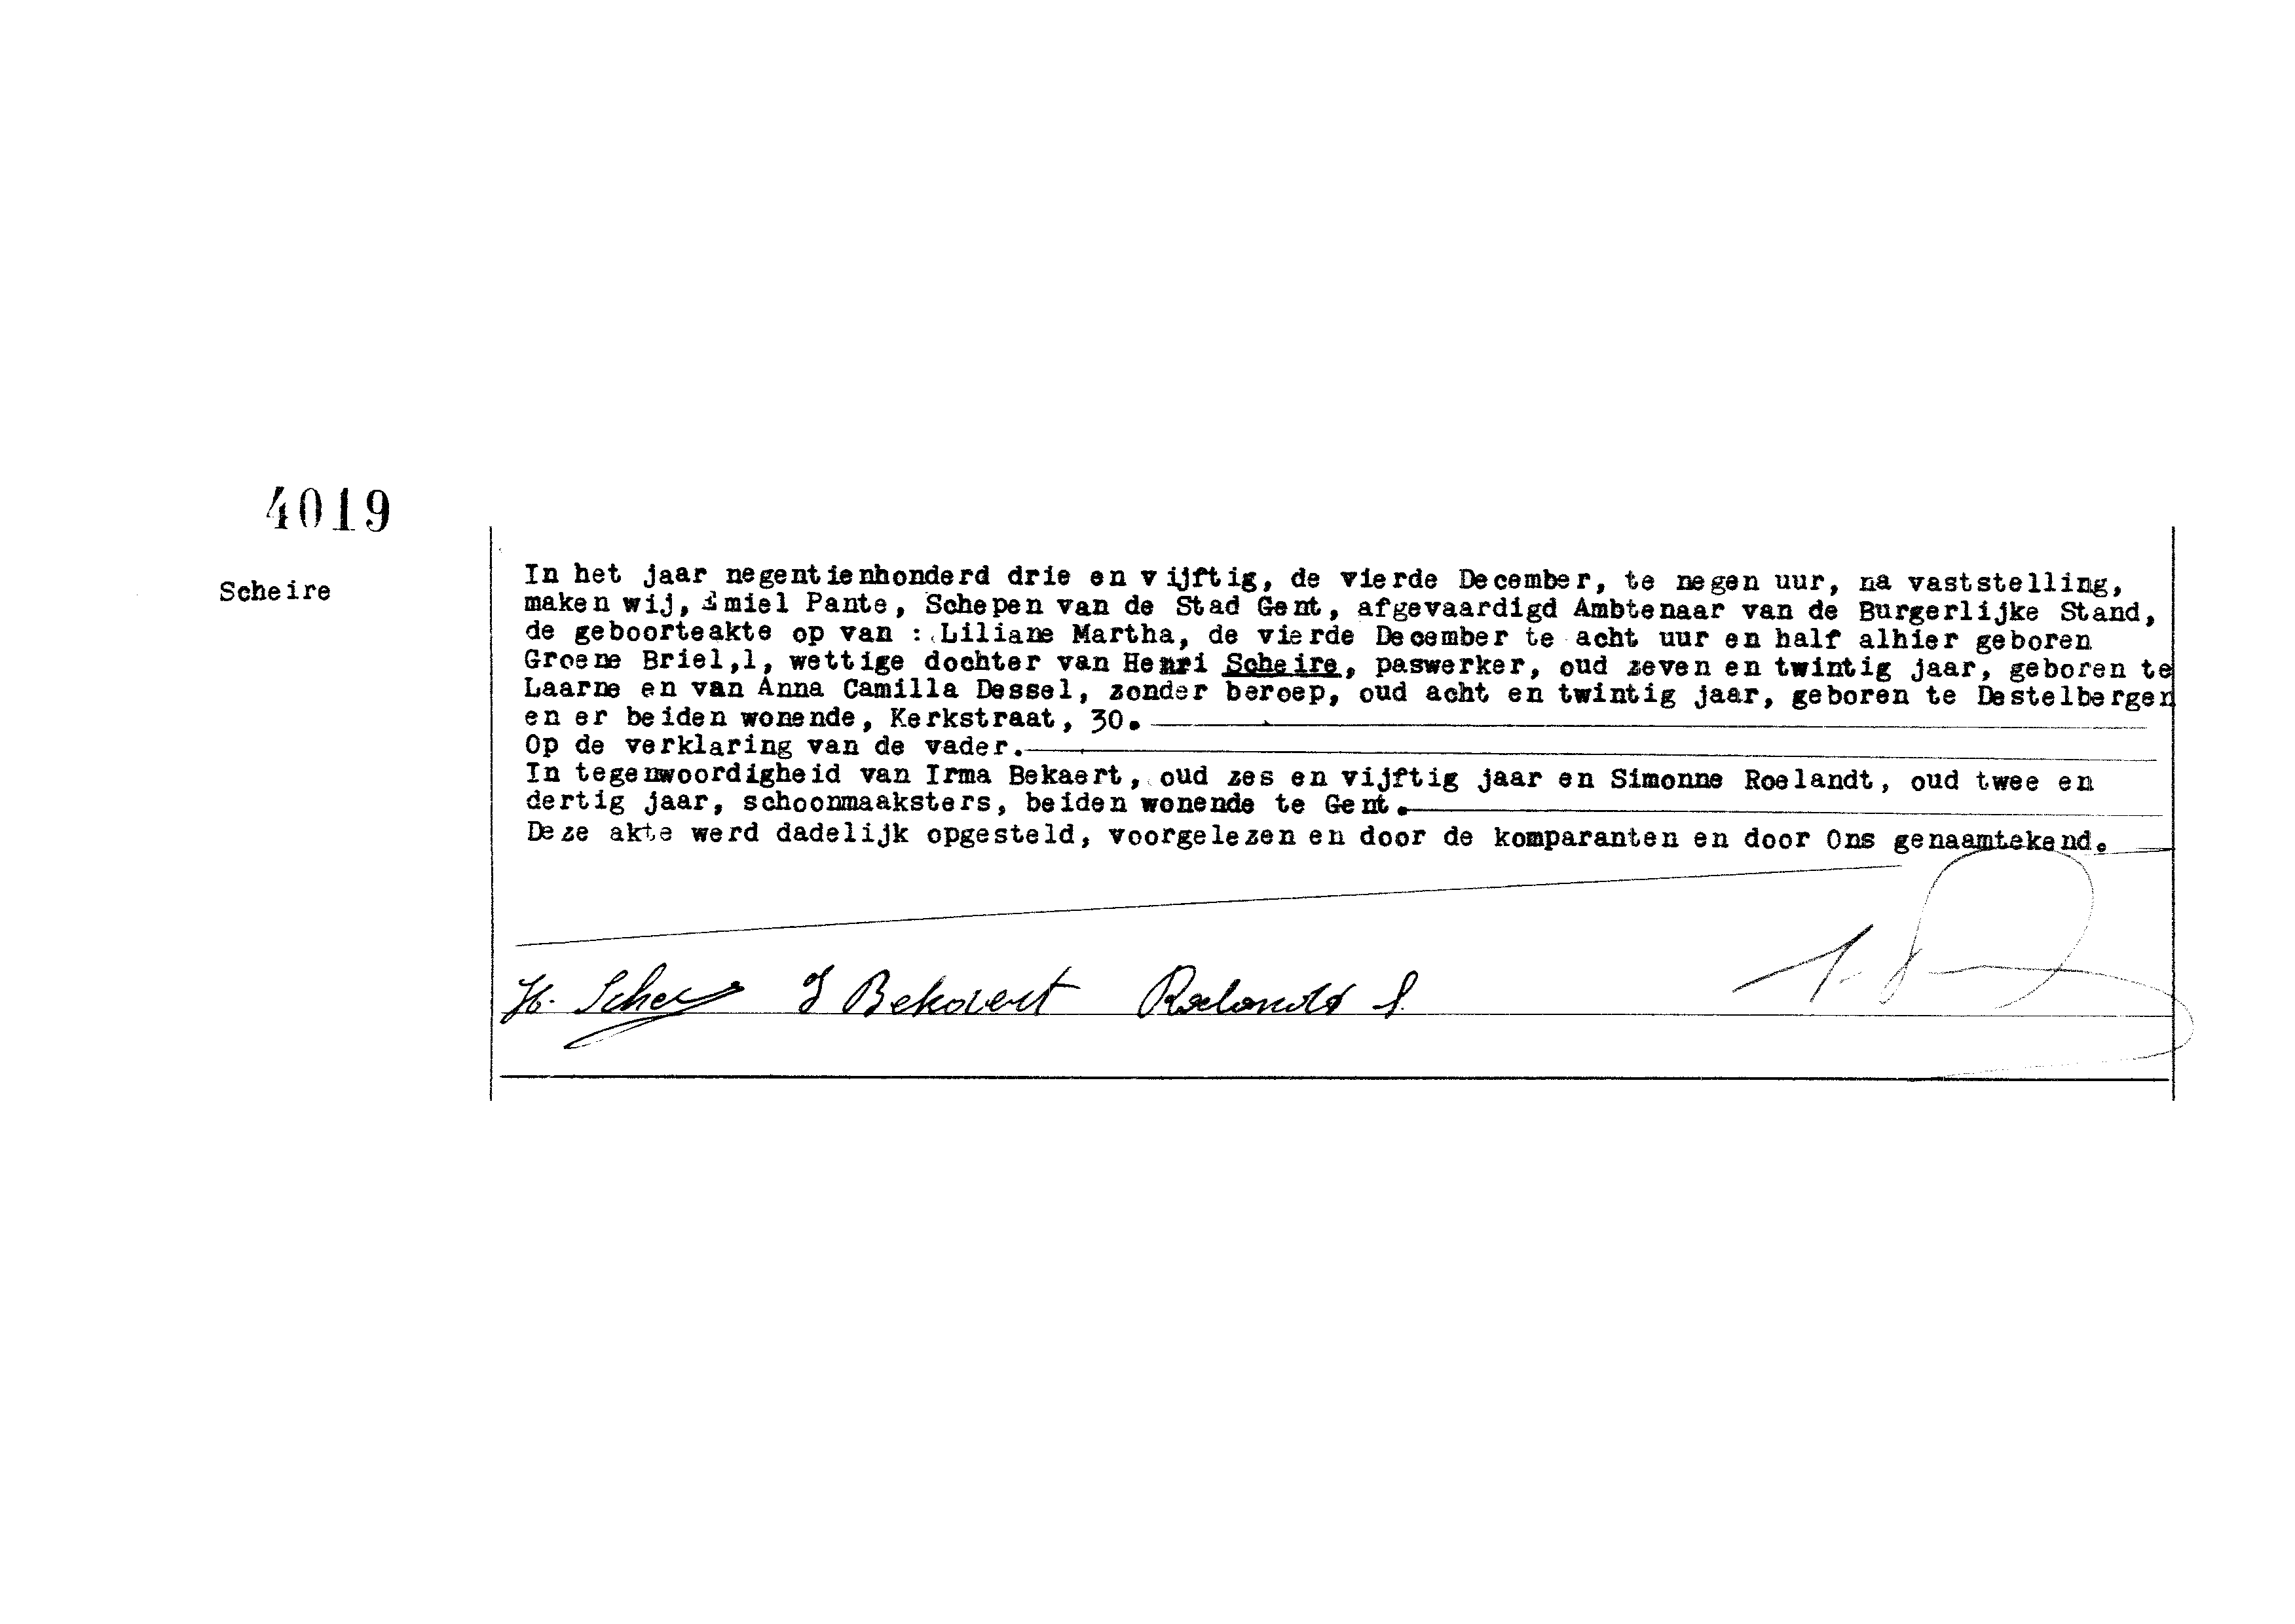 4019
Scheire
In het jaar negentienhonderd drie en vijftig, de vierde December, te negen uur, na vaststelling,
maken wij, Emiel Pante, Schepen van de Stad Gent, afgevaardigd Ambtenaar van de Burgerlijke Stand,
de geboorteakte op van : Liliane Martha, de vierde December te acht uur en half alhier geboren
Groene Briel,1, wettige dochter van Henri Scheire, paswerker, oud zeven en twintig jaar, geboren te
Laarne en van Anna Camilla Dessel, zonder beroep, oud acht en twintig jaar, geboren te Destelbergen
en er beiden wonende, Kerkstraat, 30.
Op de verklaring van de vader.
In tegenwoordigheid van Irma Bekaert, oud zes en vijftig jaar en Simonne Roelandt, oud twee en
dertig jaar, schoonmaaksters, beiden wonende te Gent.
Deze akte werd dadelijk opgesteld, voorgelezen en door de komparanten en door Ons genaamtekend.
H. I Bekaert Roelandt S.